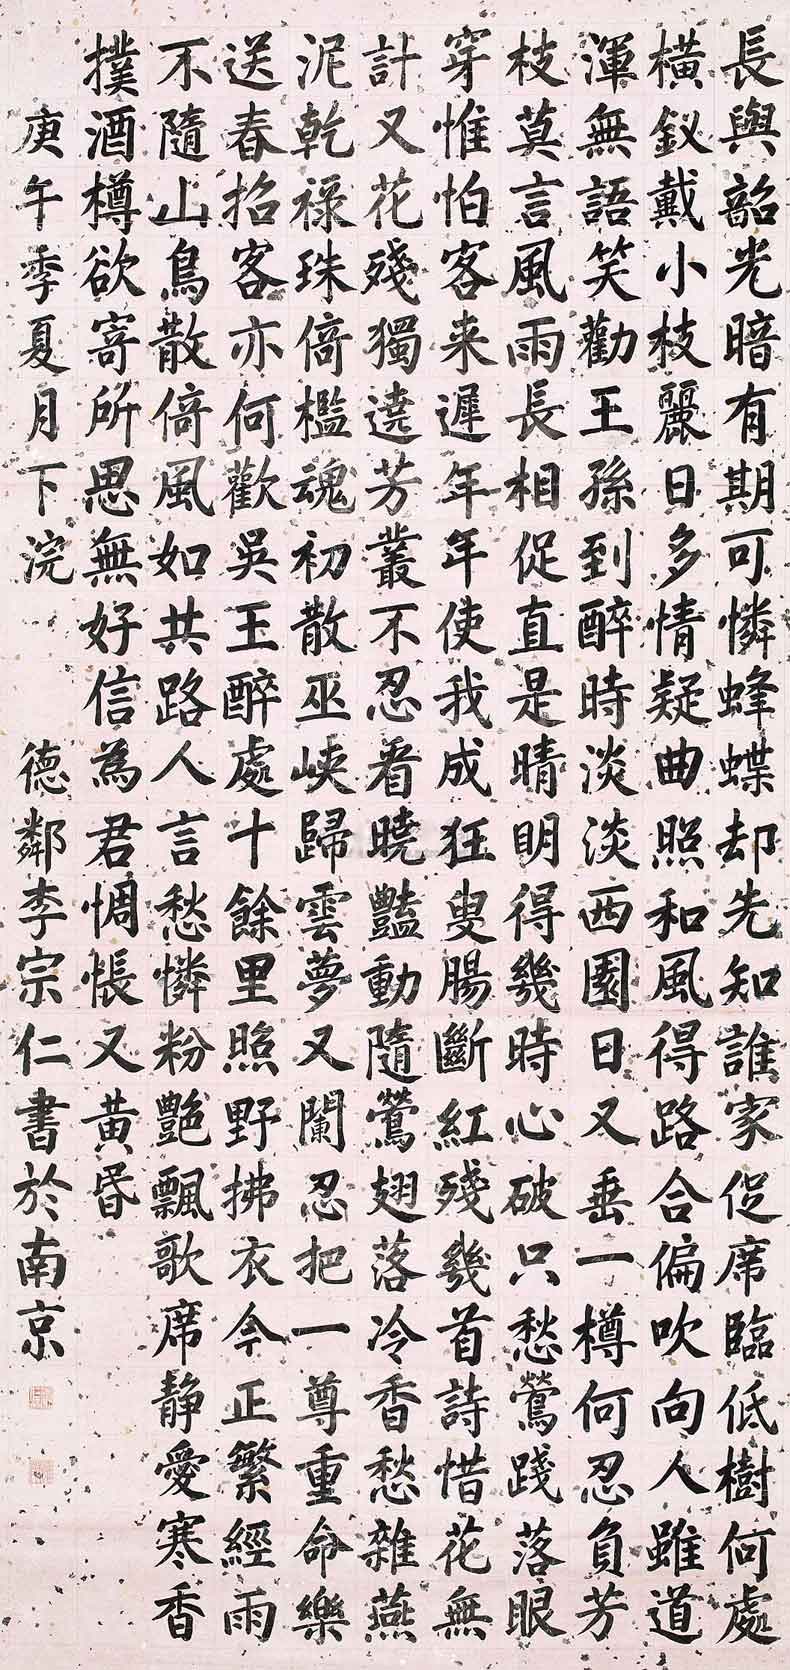 長與韶光暗有期可憐蜂蝶却先知誰家促席臨低樹何處
橫釵戴小枝麗日多情疑曲照和風得路合偏吹向人雖道
渾無語笑勸王孫到醉時淡淡西園日又垂一樽何忍負芳
枝莫言風雨長相促直是晴明得幾時心破只愁鶯踐落眼
穿惟怕客来遲年年使我成狂叟腸斷紅殘幾首詩惜花無
計又花殘獨遶芳叢不忍看曉豔動隨鶯翅落冷香愁雜燕
泥乾禄珠倚檻魂初散巫峽歸雲夢又闌忍把一尊重命樂
送春招客亦何歡吳王醉處十餘里照野拂衣今正繁經雨
不隨山鳥散倚風如共路人言愁憐粉艷飄歌席静愛寒香
撲酒樽欲寄所思無好信為君惆悵又黄昏
庚午季夏月下浣 德鄰李宗仁書於南京